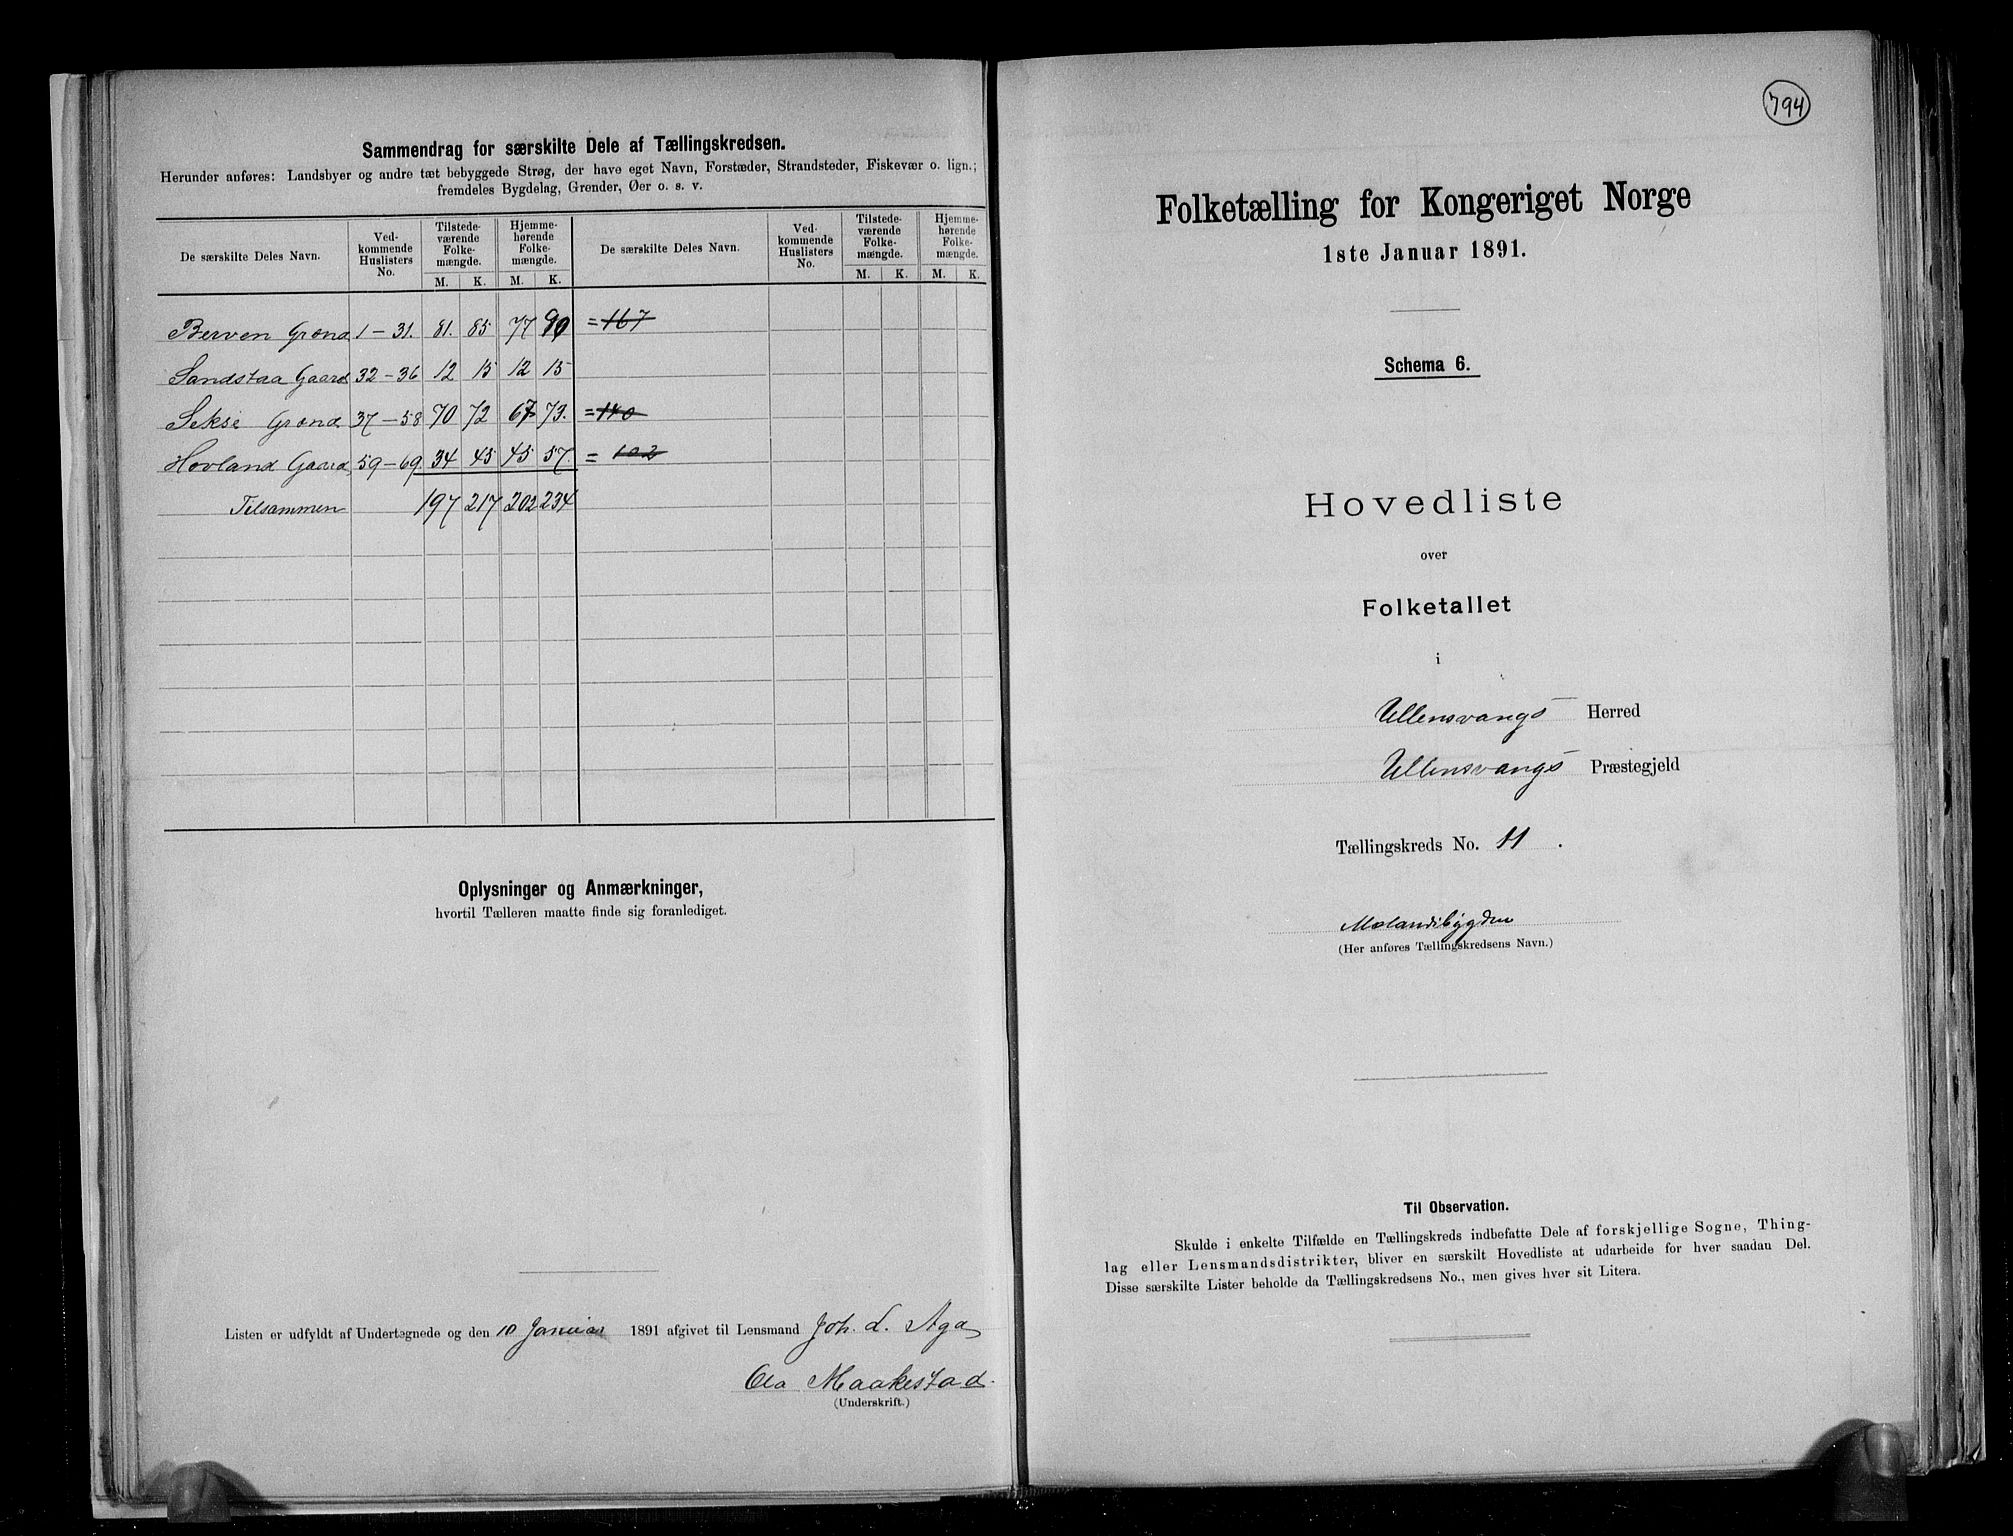 Sammendrag for særskilte Dele af Tællingskredsen.
Herunder anføres: Landsbyer og andre tæt bebyggede Strøg, der have eget Navn, Forstæder, Strandsteder, Fiskevær o. lign.;
fremdeles Bygdelag, Grender, Øer o. s. v.
De særskilte Deles Navn. Ved-kommende Huslisters No. Tilstede-værende Folke-mængde. Hjemme-hørende Folke-mængde. De særskilte Deles Navn. Ved-kommende Huslisters No. Tilstede-værende Folke-mængde. Hjemme-hørende Folke-mængde.
M. K. M. K. M. K. M. K.
Berven Grend 1 - 31. 81. 85 77 90 = 167
Sandstaa Gaard 32 - 36 12 15 12 15
Sekse Grend 37 - 58 70 72 67 73. = 140
Hovland Gaard 59 - 69 34 45 45 57. = 102
Tilsammen 197 217 202 234
Oplysninger og Anmærkninger,
hvortil Tælleren maatte finde sig foranlediget.
Listen er udfyldt af Undertegnede og den 10 Januar 1891 afgivet til Lensmand Joh. L. Aga
Ola Maakestad.
(Underskrift.)
794
Folketælling for Kongeriget Norge
1ste Januar 1891.
Schema 6.
Hovedliste
over
Folketallet
i
Ullensvangs Herred
Ullensvangs Præstegjeld
Tællingskreds No. 11.
Molandsbygden
(Her anføres Tællingskredsens Navn.)
Til Observation.
Skulde i enkelte Tilfælde en Tællingskreds indbefatte Dele af forskjellige Sogne, Thing-
lag eller Lensmandsdistrikter, bliver en særskilt Hovedliste at udarbeide for hver saadan Del.
Disse særskilte Lister beholde da Tællingskredsens No., men gives hver sit Litera.